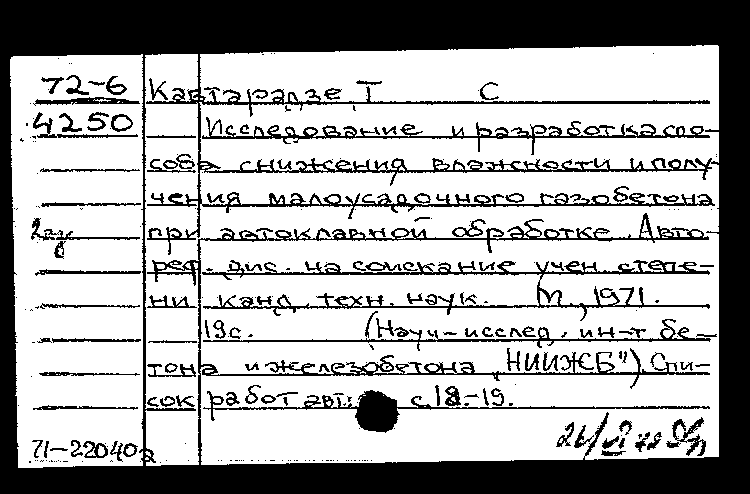 72-6 Кавтарадзе Т С
4250 Исследование и разработка спо-
соба снижения влажности и полу-
чения малоусадочного газобетона
2 при автоклавной обработке. Авто-
реф. дис. на соискание учен. степе-
ни канд. техн. наук. М., 1971.
19с. (Науч-исслед. ин-т бе-
тона и железобетона "НИИЖБ"). Спи-
сок работ авт.: с.18-19.
26/VI 72
71-22040а